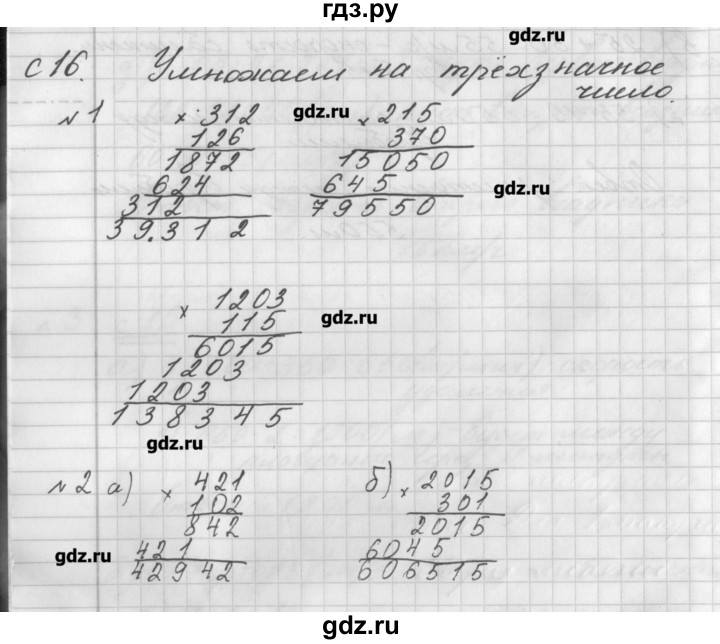 гдз.ру
с 16. Умножаем на трёхзначное
число.
gdz.ru
№ 1
× 312
126
1872
624
312
39.312
gdz.ru
× 215
370
15050
645
79550
gdz.ru
× 1203
115
6015
1203
1203
138345
gdz.ru
gdz.ru
№ 2 а)
× 421
102
842
421
42942
gdz.ru
б)
× 2015
301
2015
6045
606515
gdz.ru
gdz.ru